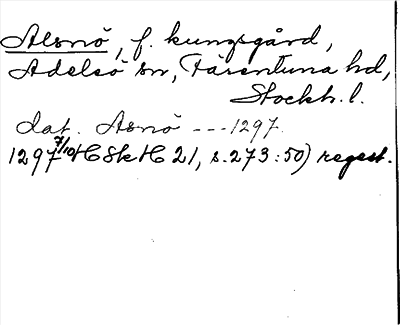 Alsnö, f. kungsgård,
Adelsö sn, Färentuna hd,
Stockh. l.
dat. Asnö --- 1297.
1297 7/10 HSkH 21, s. 273:50) regest.